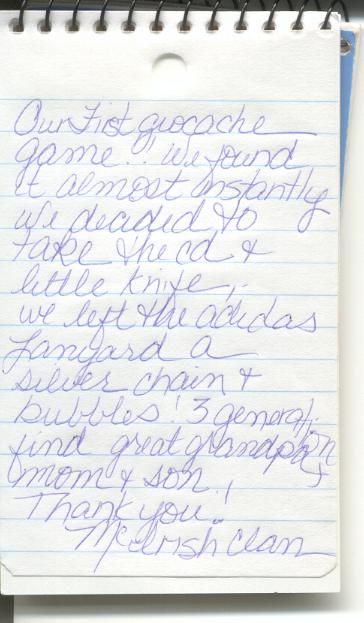 Our First geocache
game!! We found
it almost instantly
we decided to
take the cd &
little knife,.
we left the adidas
Lanyard a
silver chain &
bubbles! 3 generation
find great grandpa +
mom & son!
Thank you!
McIrish Clan